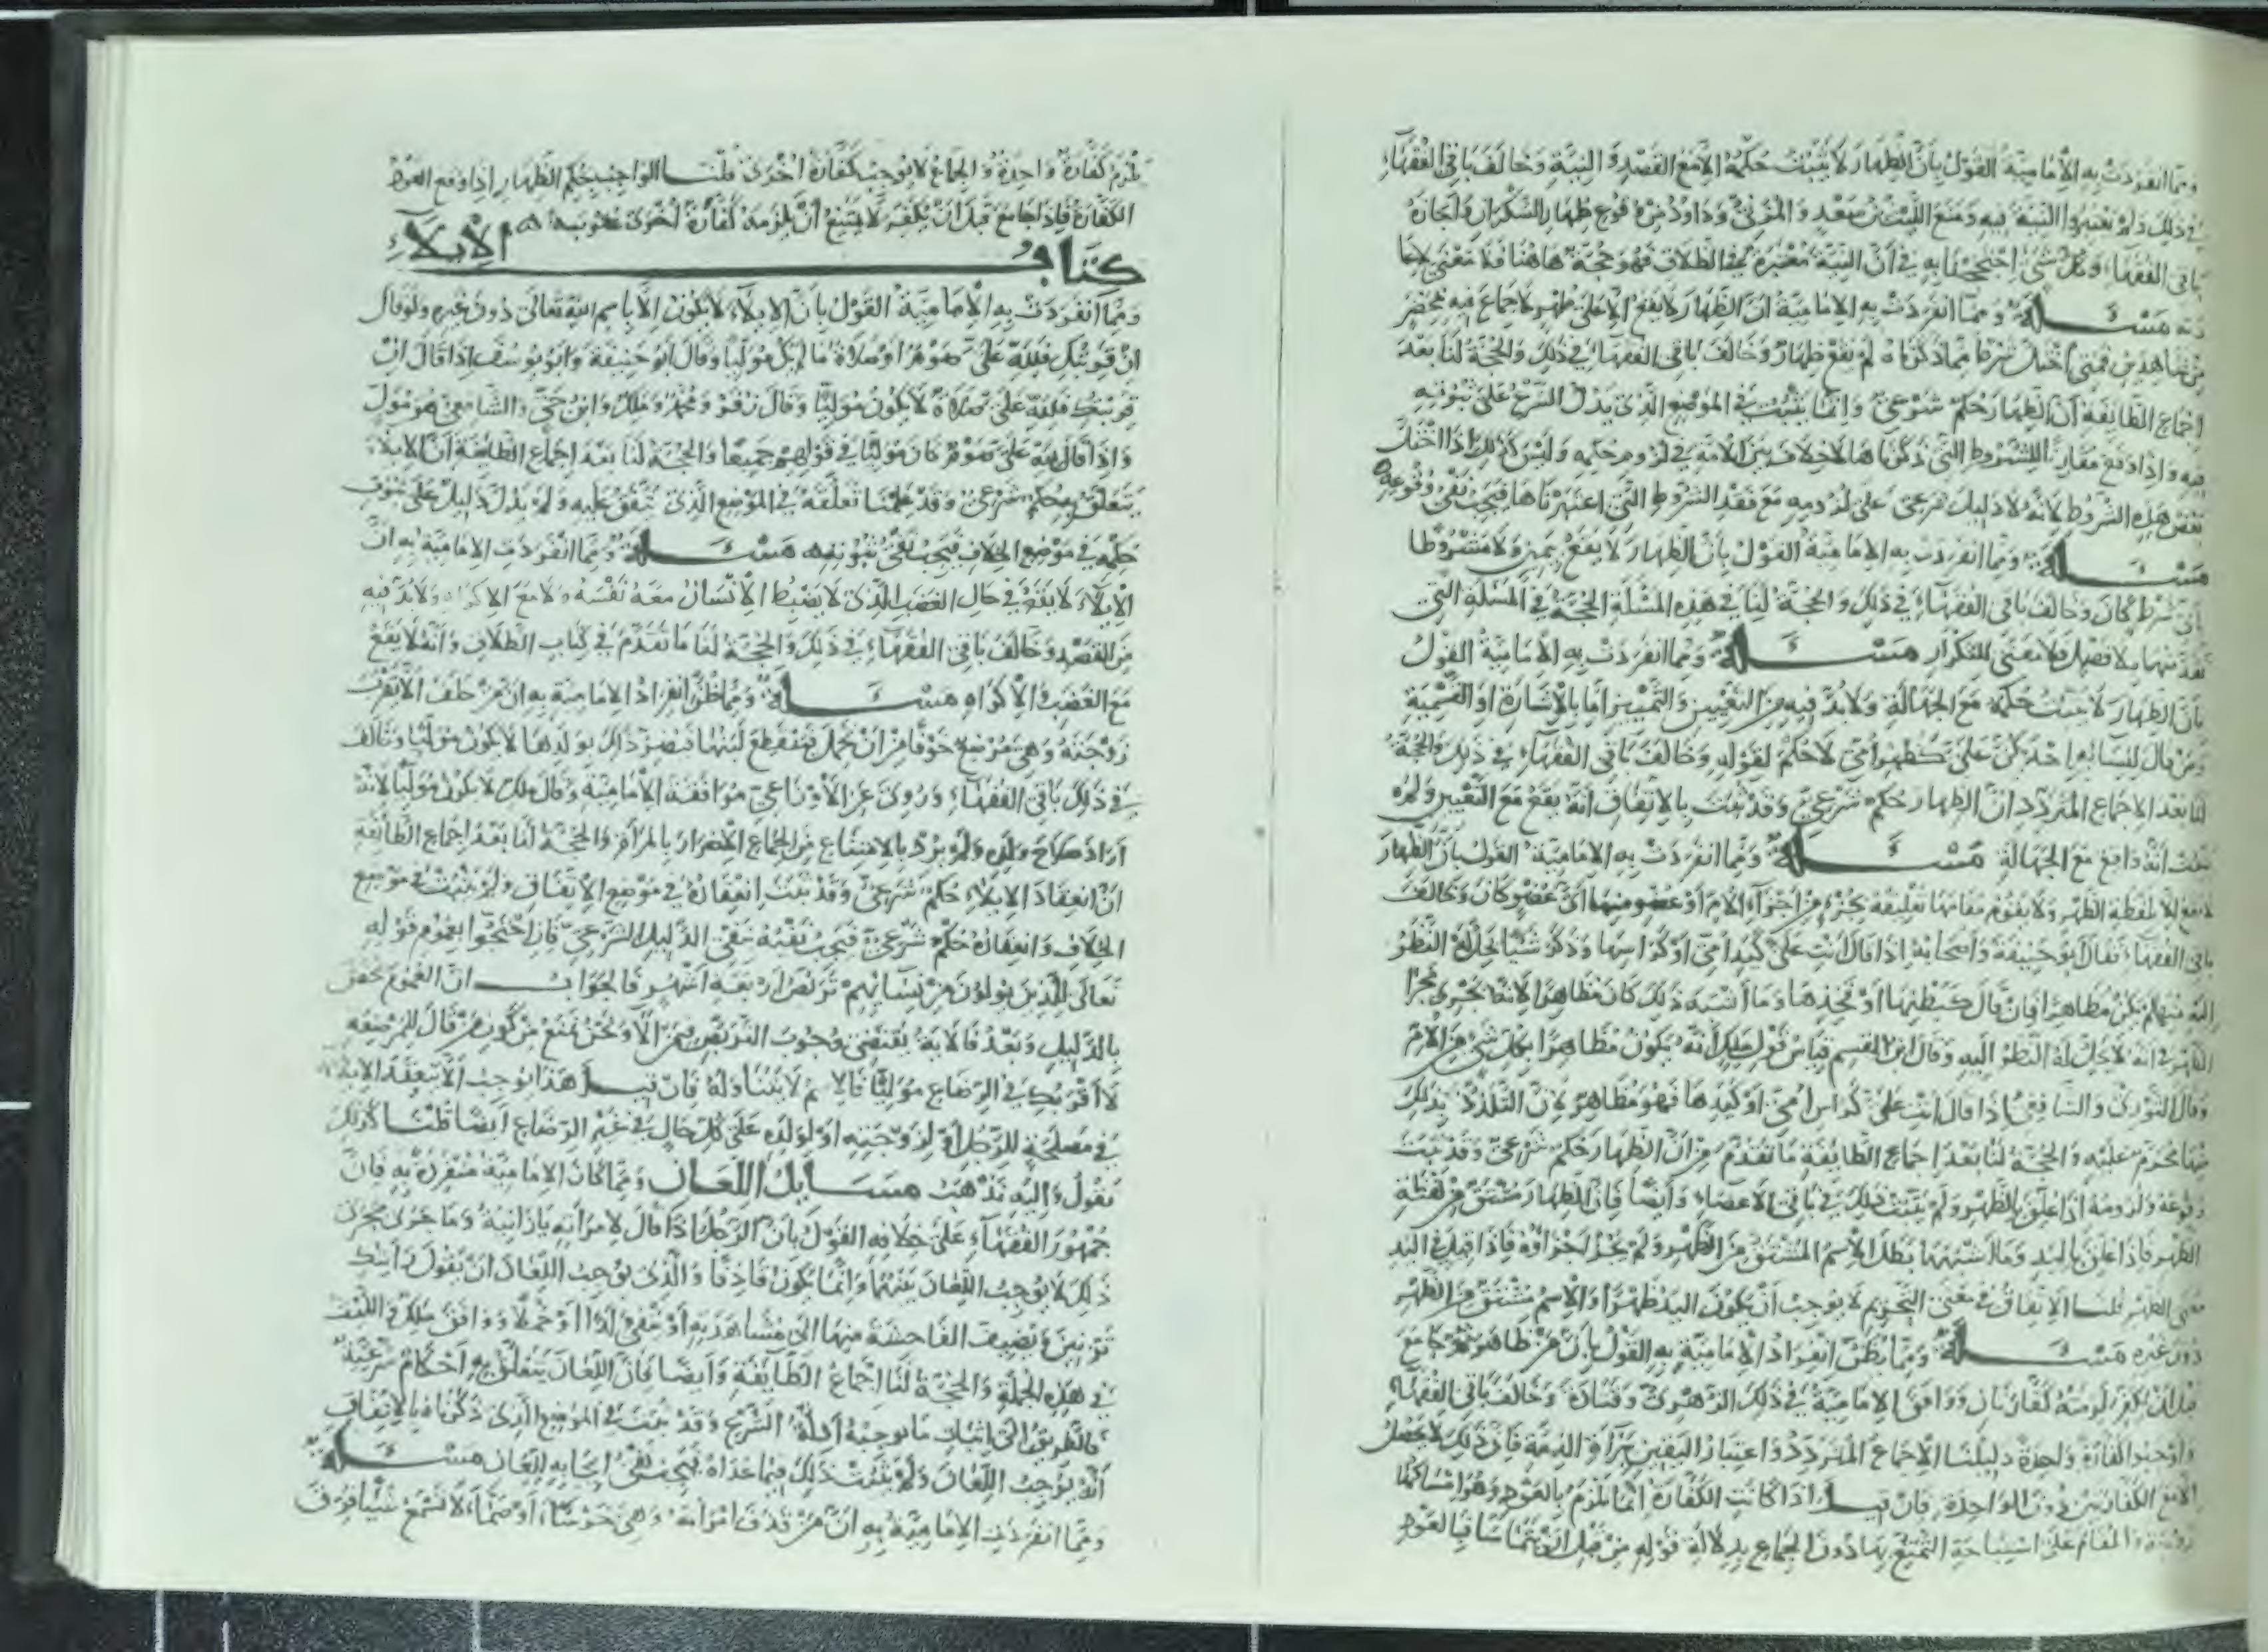 ومما انفردت به الامامية القول بأن الظهار لا يثبت حكمه الا مع القصد والنية وخالف باقي الفقهاء
في ذلك ولم يعتبروا النية فيه ومنع الليث بن سعد والمزني وداود من وقوع ظهار السكران واجازه
باقي الفقهاء وكل شيء احتججنا به في أن النية معتبرة في الطلاق فهو حجة هاهنا فلا معنى لاعا
دته مسئلة ومما انفردت به الامامية ان الظهار لا يقع الا على طهر لا جماع فيه بمحضر
من شاهدين فمتى اختل شرط مما ذكرناه لم يقع ظهار وخالف باقي الفقهاء في ذلك والحجة لنا بعد
اجماع الطائفة أن الظهار حكم شرعي وانما يثبت في الموضع الذي يدل الشرع على ثبوته
فيه واذا وقع مقارنا للشروط التي ذكرناها لا خلاف بين الامة في لزوم حكمه وليس كذلك اذا اختل
بعض هذه الشروط لانه لا دليل شرعي على لزومه مع فقد الشروط التي اعتبرناها فيجب نفي وقوعه
مسئلة ومما انفردت به الامامية القول بأن الظهار لا يقع بيمين ولا مشروطا
بأي شرط كان وخالف باقي الفقهاء في ذلك والحجة لنا في هذه المسئلة الحجة في المسئلة التي
تقدمتها بلا فصل فلا معنى للتكرار مسئلة ومما انفردت به الامامية القول
بأن الظهار لا يثبت حكمه مع الجهالة ولا بد فيه من التعيين والتمييز اما بالاشارة او التسمية
ومن قال لنسائه احدكن علي كظهر أمي لا حكم لقوله وخالف باقي الفقهاء في ذلك والحجة
لنا بعد الاجماع المتردد ان الظهار حكم شرعي وقد ثبت بالاتفاق انه يقع مع التعيين ولم
يثبت أنه واقع مع الجهالة مسئلة ومما انفردت به الامامية القول بأن الظهار
لا يقع الا بلفظه الظهر ولا يقوم مقامها تعليقه بجزء من اجزاء الام أو عضو منها أي عضو كان وخالف
باقي الفقهاء فقال ابو حنيفة واصحابه اذا قال انت علي كيد امي او كراسها وذكر شيئا يحل له النظر
اليه منها لم يكن مظاهرا فان قال كبطنها أو كفخذها وما أشبه ذلك كان مظاهرا لانه يجري مجرى
الظهر في انه لا يحل له النظر اليه وقال ابن القسم قياس قول ملك أنه يكون مظاهرا بكل شيء من الأم
وقال الثوري والشافعي اذا قال انت علي كراس امي او كيدها فهو مظاهر لان التلذذ بذلك
منها محرم عليه والحجة لنا بعد اجماع الطائفة ما تقدم من ان الظهار حكم شرعي وقد ثبت
وقوعه ولزومه اذا علق بالظهر ولم يثبت ذلك في باقي الاعضاء وايضا فان الظهار مشتق من لفظة
الظهر فاذا علق باليد وما اشبهها بطل الاسم المشتق من الظهر ولم يجز اجزاؤه فاذا قيل في اليد
معنى الظهر قلنا الاتفاق في معنى التحريم لا يوجب أن يكون اليد ظهرا والاسم مشتق من الظهر
دون غيره مسئلة ومما يظن انفراد الامامية به القول بان من ظاهر ثم جامع
قبل أن يكفر لزمته كفارتان ووافق الامامية في ذلك الزهري وقتادة وخالف باقي الفقهاء
واوجبوا كفارة واحدة دليلنا الاجماع المتردد واعتبار اليقين ببراءة الذمة فان ذلك لا يحصل
الا مع الكفارتين دون الواحدة فان قيل اذا كانت الكفارة انما تلزم بالعود وهو امساكها
زوجة والمقام على استباحة التمتع بها دون الجماع بدلالة قوله من قبل ان يتماسا فبالعود
تلزم كفارة واحدة والجماع لا يوجب كفارة اخرى قلنا الواجب بحكم الظهار اذا وقع العود
الكفارة فاذا جامع قبل ان يكفر لا يمتنع أن يلزمه كفارة اخرى عقوبة
كتاب الايلاء
ومما انفردت به الامامية القول بأن الايلاء لا يكون الا باسم الله تعالى دون غيره ولو قال
ان قربتك فلله علي صوم او صلاة ما لم يكن موليا وقال أبو حنيفة وأبو يوسف اذا قال ان
قربتك فلله علي صلاة لا يكون موليا وقال زفر ومحمد وملك وابن حي والشافعي هو مول
واذا قال لله علي صوم كان موليا في قولهم جميعا والحجة لنا بعد اجماع الطايفة ان الايلاء
يتعلق بحكم شرعي وقد علمنا تعلقه في الموضع الذي نتفق عليه ولم يدل دليل على ثبوت
حكمه في موضع الخلاف فيجب نفي ثبوته مسئلة ومما انفردت الامامية به ان
الايلاء لا يقع في حال الغضب الذي لا يضبط الانسان معه نفسه ولا مع الاكراه ولا بد فيه
من القصد وخالف باقي الفقهاء في ذلك والحجة لنا ما تقدم في كتاب الطلاق وانه لا يقع
مع الغضب والاكراه مسئلة ومما ظن انفراد الامامية به ان من حلف الا يقرب
زوجته وهي مرضع خوفا من ان تحمل فينقطع لبنها فيضر ذلك بولدها لا يكون موليا وخالف
في ذلك باقي الفقهاء وروي عن الأوزاعي موافقة الامامية وقال ملك لا يكون موليا لانه
اراد صلاح ولده ولم يرد بالامتناع من الجماع الاضرار بالمرأة والحجة لنا بعد اجماع الطائفة
ان انعقاد الايلاء حكم شرعي وقد ثبت انعقاده في موضع الاتفاق ولم يثبت في موضع
الخلاف وانعقاده حكم شرعي فيجب نفيه بنفي الدليل الشرعي فان احتجوا بعموم قوله
تعالى للذين يولون من نسائهم تربص اربعة اشهر فالجواب ان العموم يخص
بالدليل وبعد فالاية يقتضي وجوب التربص فيمن آلا ونحن نمنع من كون من قال للمرضعه
لا أقربك في الرضاع موليا فالاسم لا يتناوله فان قيل هذا يوجب الا ينعقد الايلاء
في مصلحة للرجل أو لزوجته او لولده على كل حال في غير الرضاع ايضا قلنا كذلك
نقول واليه نذهب مسايل اللعان ومما كان الامامية منفردة به فان
جمهور الفقهاء على خلافه القول بأن الرجل اذا قال لامرأته يا زانية وما جرى مجرى
ذلك لا يوجب اللعان بينهما وانما يكون قاذفا والذي يوجب اللعان ان يقول رأيتك
تزنين ويضيف الفاحشة منها الى مشاهدته أو ينفي ولدا أو حملا ووافق ملك والليث
في هذه الجملة والحجة لنا اجماع الطايفة وايضا فان اللعان يتعلق به احكام شرعية
فالطريق الى اثبات ما يوجبه أدلة الشرع وقد ثبت في الموضع الذي ذكرناه بالاتفاق
أنه يوجب اللعان ولم يثبت ذلك فيما عداه فيجب نفي ايجابه للعان مسئلة
ومما انفردت الامامية به ان من قذف امرأته وهي خرساء أو صماء لا تسمع شيئا فرق